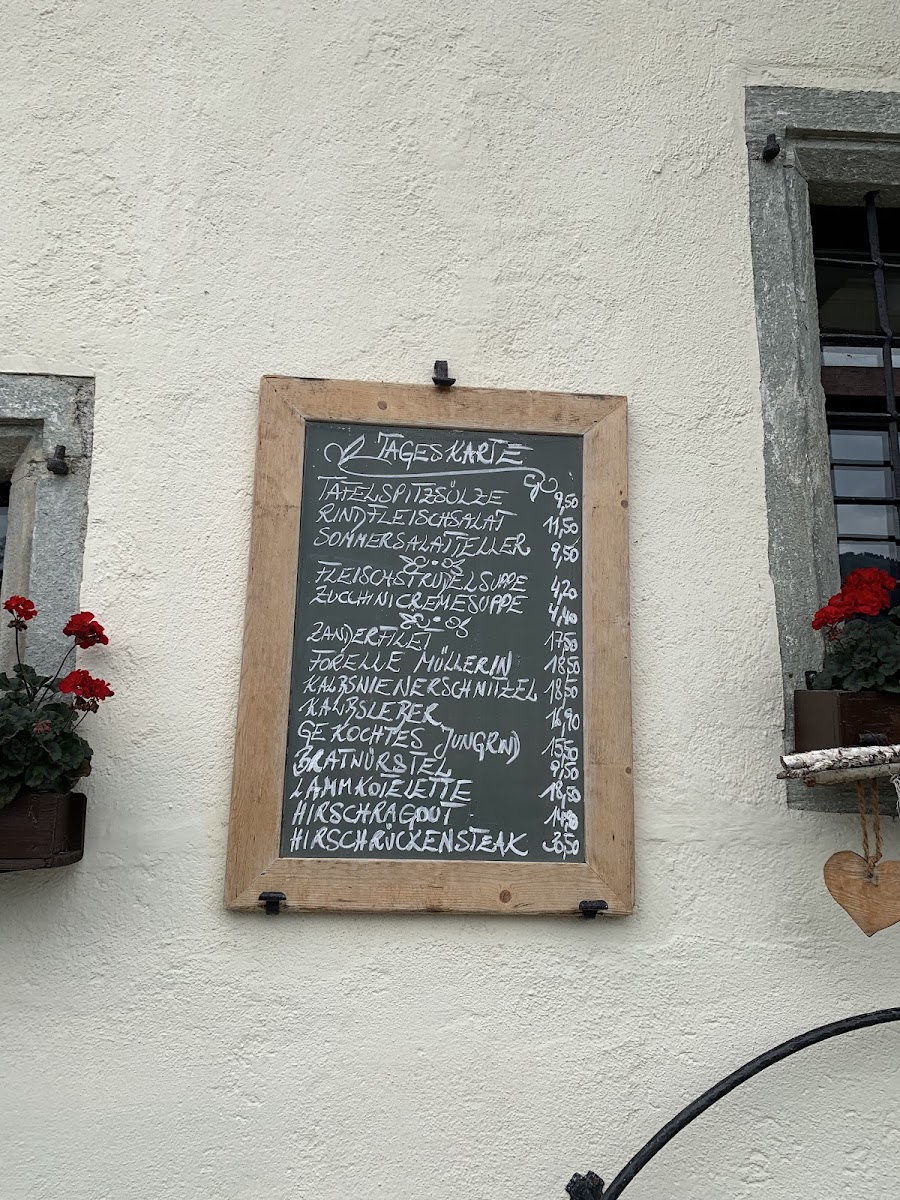 TAGESKARTE
TAFELSPITZSÜLZE 9,50
RINDFLEISCHSALAT 11,50
SOMMERSALATTELLER 9,50
FLEISCHSTRUDELSUPPE 4,20
ZUCCHINICREMESUPPE 4,40
ZANDERFILET 17,50
FORELLE MÜLLERIN 18,50
KALBSWIENERSCHNITZEL 18,50
KALBSLEBER 16,90
GEKOCHTES JUNGRIND 15,50
BRATWÜRSTEL 9,50
LAMMKOTELETTE 18,50
HIRSCHRAGOUT
HIRSCHRÜCKENSTEAK